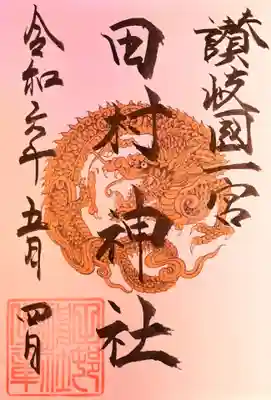 讃岐國一宮
田村神社
令和六年 五月 四日